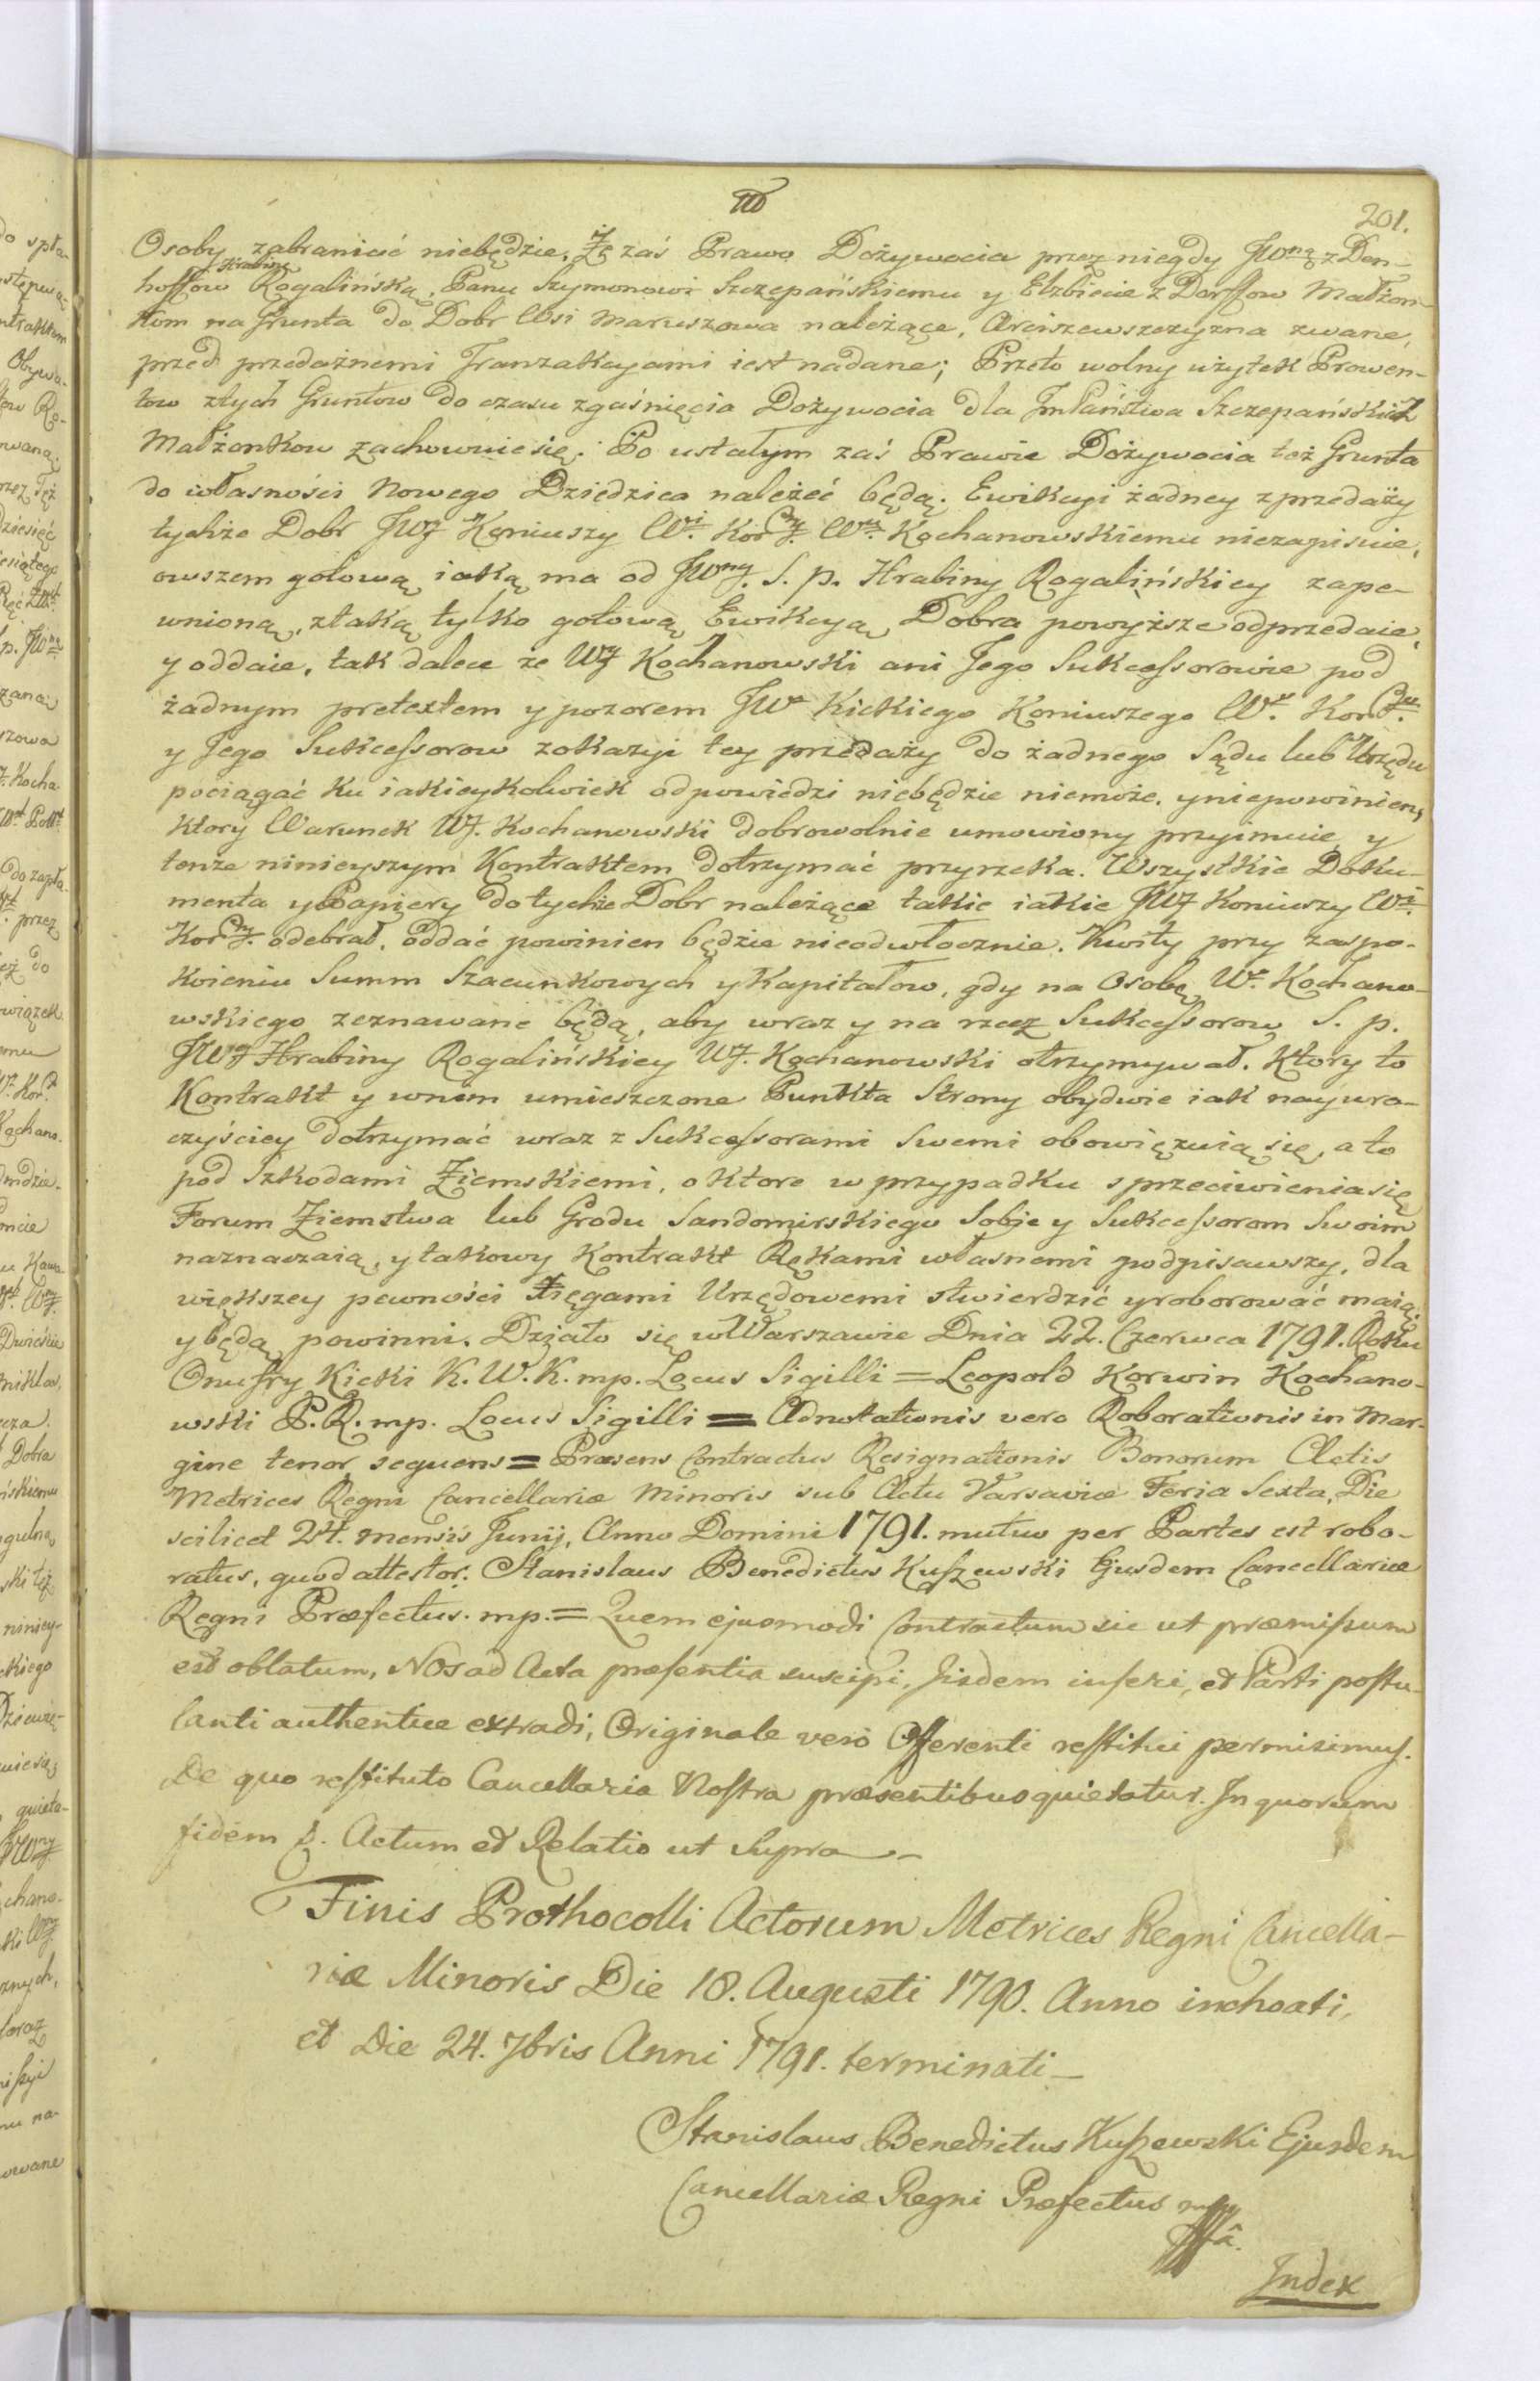 201.
Osoby zabraniać niebędzie. Iż zaś Prawo Dożywocia przez niegdy JWną z Den-
hoffow Hrabinę Rogalińską, Panu Szymonowi Szczepańskiemu y Elzbiecie z Dorffow Małżon-
kom na Grunta do Dobr Wsi Maruszowa należące, Arciszewszczyzna zwane,
przed przedażnemi Tranzakcyami iest nadane; Przeto wolny użytek Prowen-
tow ztych Gruntow do czasu zgaśnięcia Dożywocia dla ImPaństwa Szczepańskich
Małżonkow zachowuie się. Po ustałym zaś Prawie Dożywocia też Grunta
do własności Nowego Dziedzica należeć będą. Ewikcyi żadney z przedaży
tychże Dobr JWJ Koniuszy Wi. Kor. Wmu Kochanowskiemu niezapisuie,
owszem gołową iaką ma od JWny. S. p. Hrabiny Rogalińskiey zape-
wnioną, ztaką tylko gołową Ewikcyą Dobra powyższe odprzedaie,
y oddaie, tak dalece że WJ Kochanowski ani Jego Sukcessorowie pod
żadnym pretextem y pozorem JWo Kickiego Koniuszego Wo. Kor.
y Jego Sukcessorow zokazyi tey przedaży do żadnego Sądu lub Urzędu
pociągać ku iakieykolwiek odpowiedzi niebędzie niemoże, y niepowinien,
ktory Warunek WJ. Kochanowski dobrowolnie umowiony przyimuie, y
tenże ninieyszym Kontraktem dotrzymać przyrzeka. Wszystkie Doku-
menta y Papiery do tychże Dobr należące takie iakie JWJ Koniuszy Wi.
Kor. odebrał, oddać powinien będzie nieodwłocznie. Kwity przy zaspo-
koieniu Summ Szacunkowych y Kapitałow, gdy na Osobę Wo. Kochano-
wskiego zeznawane będą, aby wraz y na rzecz Sukcessorow S. p.
JWny Hrabiny Rogalińskiey WJ. Kochanowski otrzymywał. Ktory to
Kontrakt y wnim umieszczone Punkta Strony obydwie iak nayuro-
czyściey dotrzymać wraz z Sukcessorami Swemi obowięzuią się, a to
pod Szkodami Ziemskiemi, o ktore w przypadku sprzeciwienia się
Forum Ziemstwa lub Grodu Sandomirskiego Sobie y Sukcessorom Swoim
naznaczaią, y takowy Kontrakt Rękami własnemi podpisawszy, dla
większey pewności Xięgami Urzędowemi stwierdzić y roborować maią,
y będą powinni. Działo się w Warszawie Dnia 22. Czerwca 1791. Roku
Onufry Kicki K. W. K. mp. Locus Sigilli = Leopold Korwin Kochano-
wski P. R. mp. Locus Sigilli = Adnotationis vero Roborationis in Mar-
gine tenor sequens = Præsens Contractus Resignationis Bonorum Actis
Metrices Regni Cancellariæ Minoris sub Actu Varsaviæ Feria Sexta, Die
scilicet 24. mensis Junij, Anno Domini 1791. mutuo per Partes est robo-
ratus, quod attestor. Stanislaus Benedictus Kuszewski Ejusdem Cancellariæ
Regni Præfectus. mp. = Quem ejusmodi Contractum sic ut præmissum
est oblatum, Nos ad Acta præsentia suscipi, Iisdem inseri, et Parti postu-
lanti authentice extradi, Originale vero Offerenti restitui permisimus.
De quo restituto Cancellaria Nostra præsentibus quietatur. In quorum
fidem &. Actum et Relatio ut Supra
Finis Prothocolli Actorum Metrices Regni Cancella-
riæ Minoris Die 18. Augusti 1790. Anno inchoati,
et Die 24. 7bris Anni 1791. terminati
Stanislaus Benedictus Kuszewski Ejusdem
Cancellariæ Regni Præfectus mp
Index